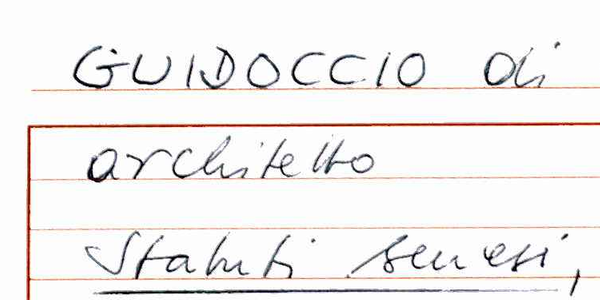 GUIDOCCIO di
architetto
Statuti senesi,